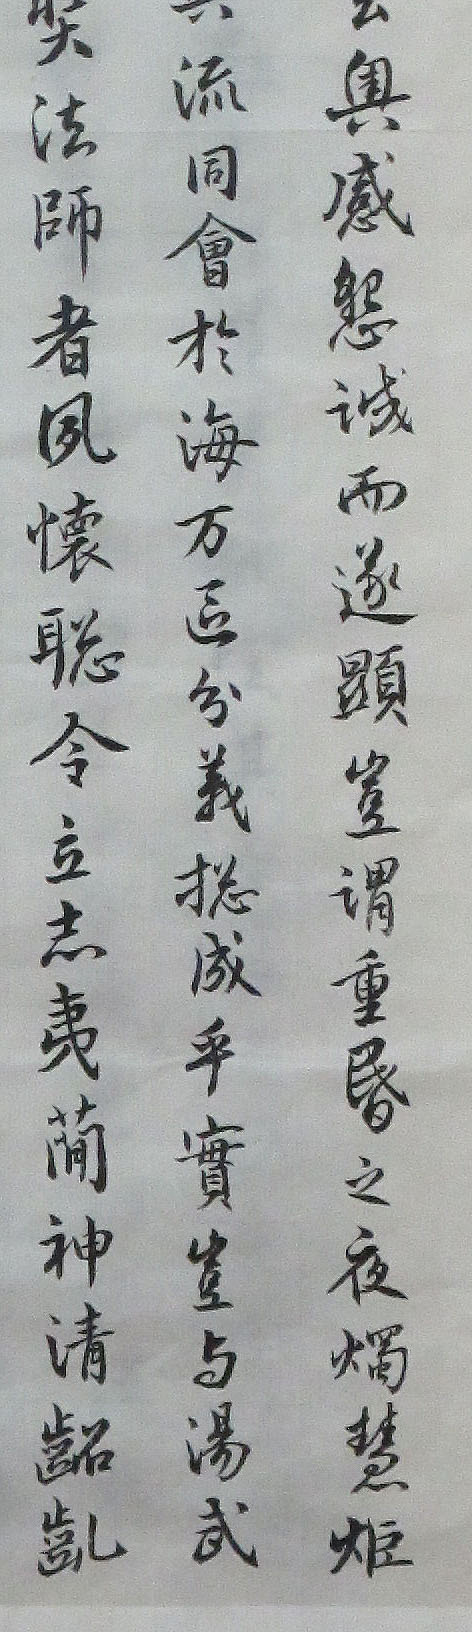 奥感懇誠而遂顯豈謂重昏之夜燭慧炬
流同會於海万區分義摠成乎實豈与湯武
奘法師者夙懷聡令立志夷蕳神清齠齓